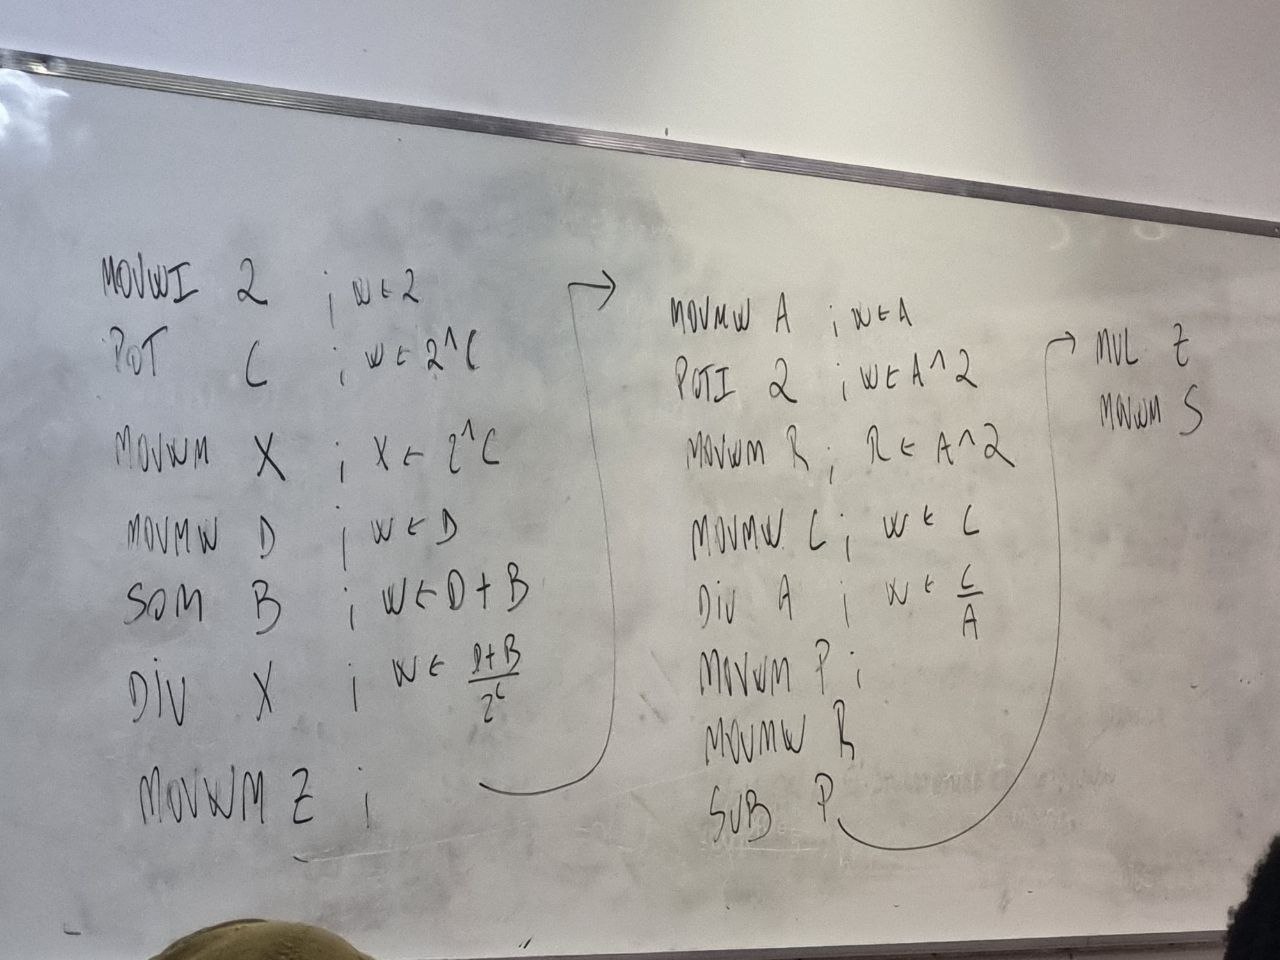 MOVWI 2 ; W ← 2
POT C ; W ← 2^C
MOVWM X ; X ← 2^C
MOVMW D ; W ← D
SOM B ; W ← D + B
DIV X ; W ← D+B / 2^C
MOVWM Z ;
→
MOVMW A ; W ← A
POTI 2 ; W ← A^2
MOVWM R ; R ← A^2
MOVMW C ; W ← C
DIV A ; W ← C / A
MOVWM P ;
MOVMW R
SUB P
→ MUL Z
MOVWM S